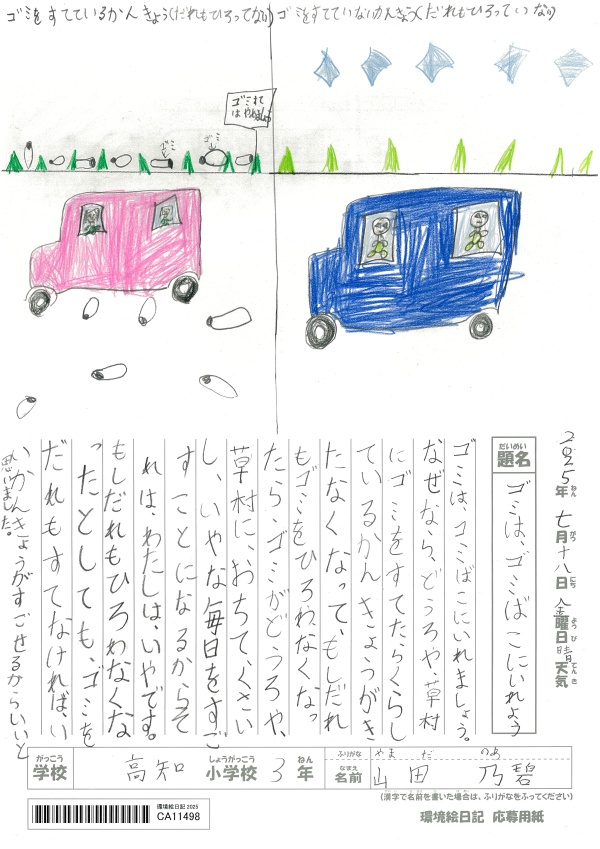 ゴミをすてているかんきょう(だれもひろってない)
ゴミをすてていないかんきょう(だれもひろっていない)
ゴミすて
はやめましょう
ゴミ
ゴミ
2025年ねん 七月がつ十八日にち 金曜日ようび 晴天気てんき
だいめい
題名
ゴミは、ゴミばこにいれよう
ゴミは、ゴミばこにいれましょう。
なぜなら、どうろや草村
にゴミをすてたらくらし
ているかんきょうがき
たなくなって、もしだれ
もゴミをひろわなくなっ
たら、ゴミがどうろや、
草村に、おちてくさい
し、いやな毎日をすご
すことになるからそ
れは、わたしは、いやです。
もしだれもひろわなくな
ったとしても、ゴミを
だれもすてなければ、い
いかんきょうがすごせるからいいと
思いました。
がっこう しょうがっこう ねん ふりがな やまだ のあ
学校 高知 小学校 3年 なまえ 名前 山田 乃碧
(漢字で名前を書いた場合は、ふりがなをふってください)
環境絵日記 2025
CA11498
環境絵日記 応募用紙